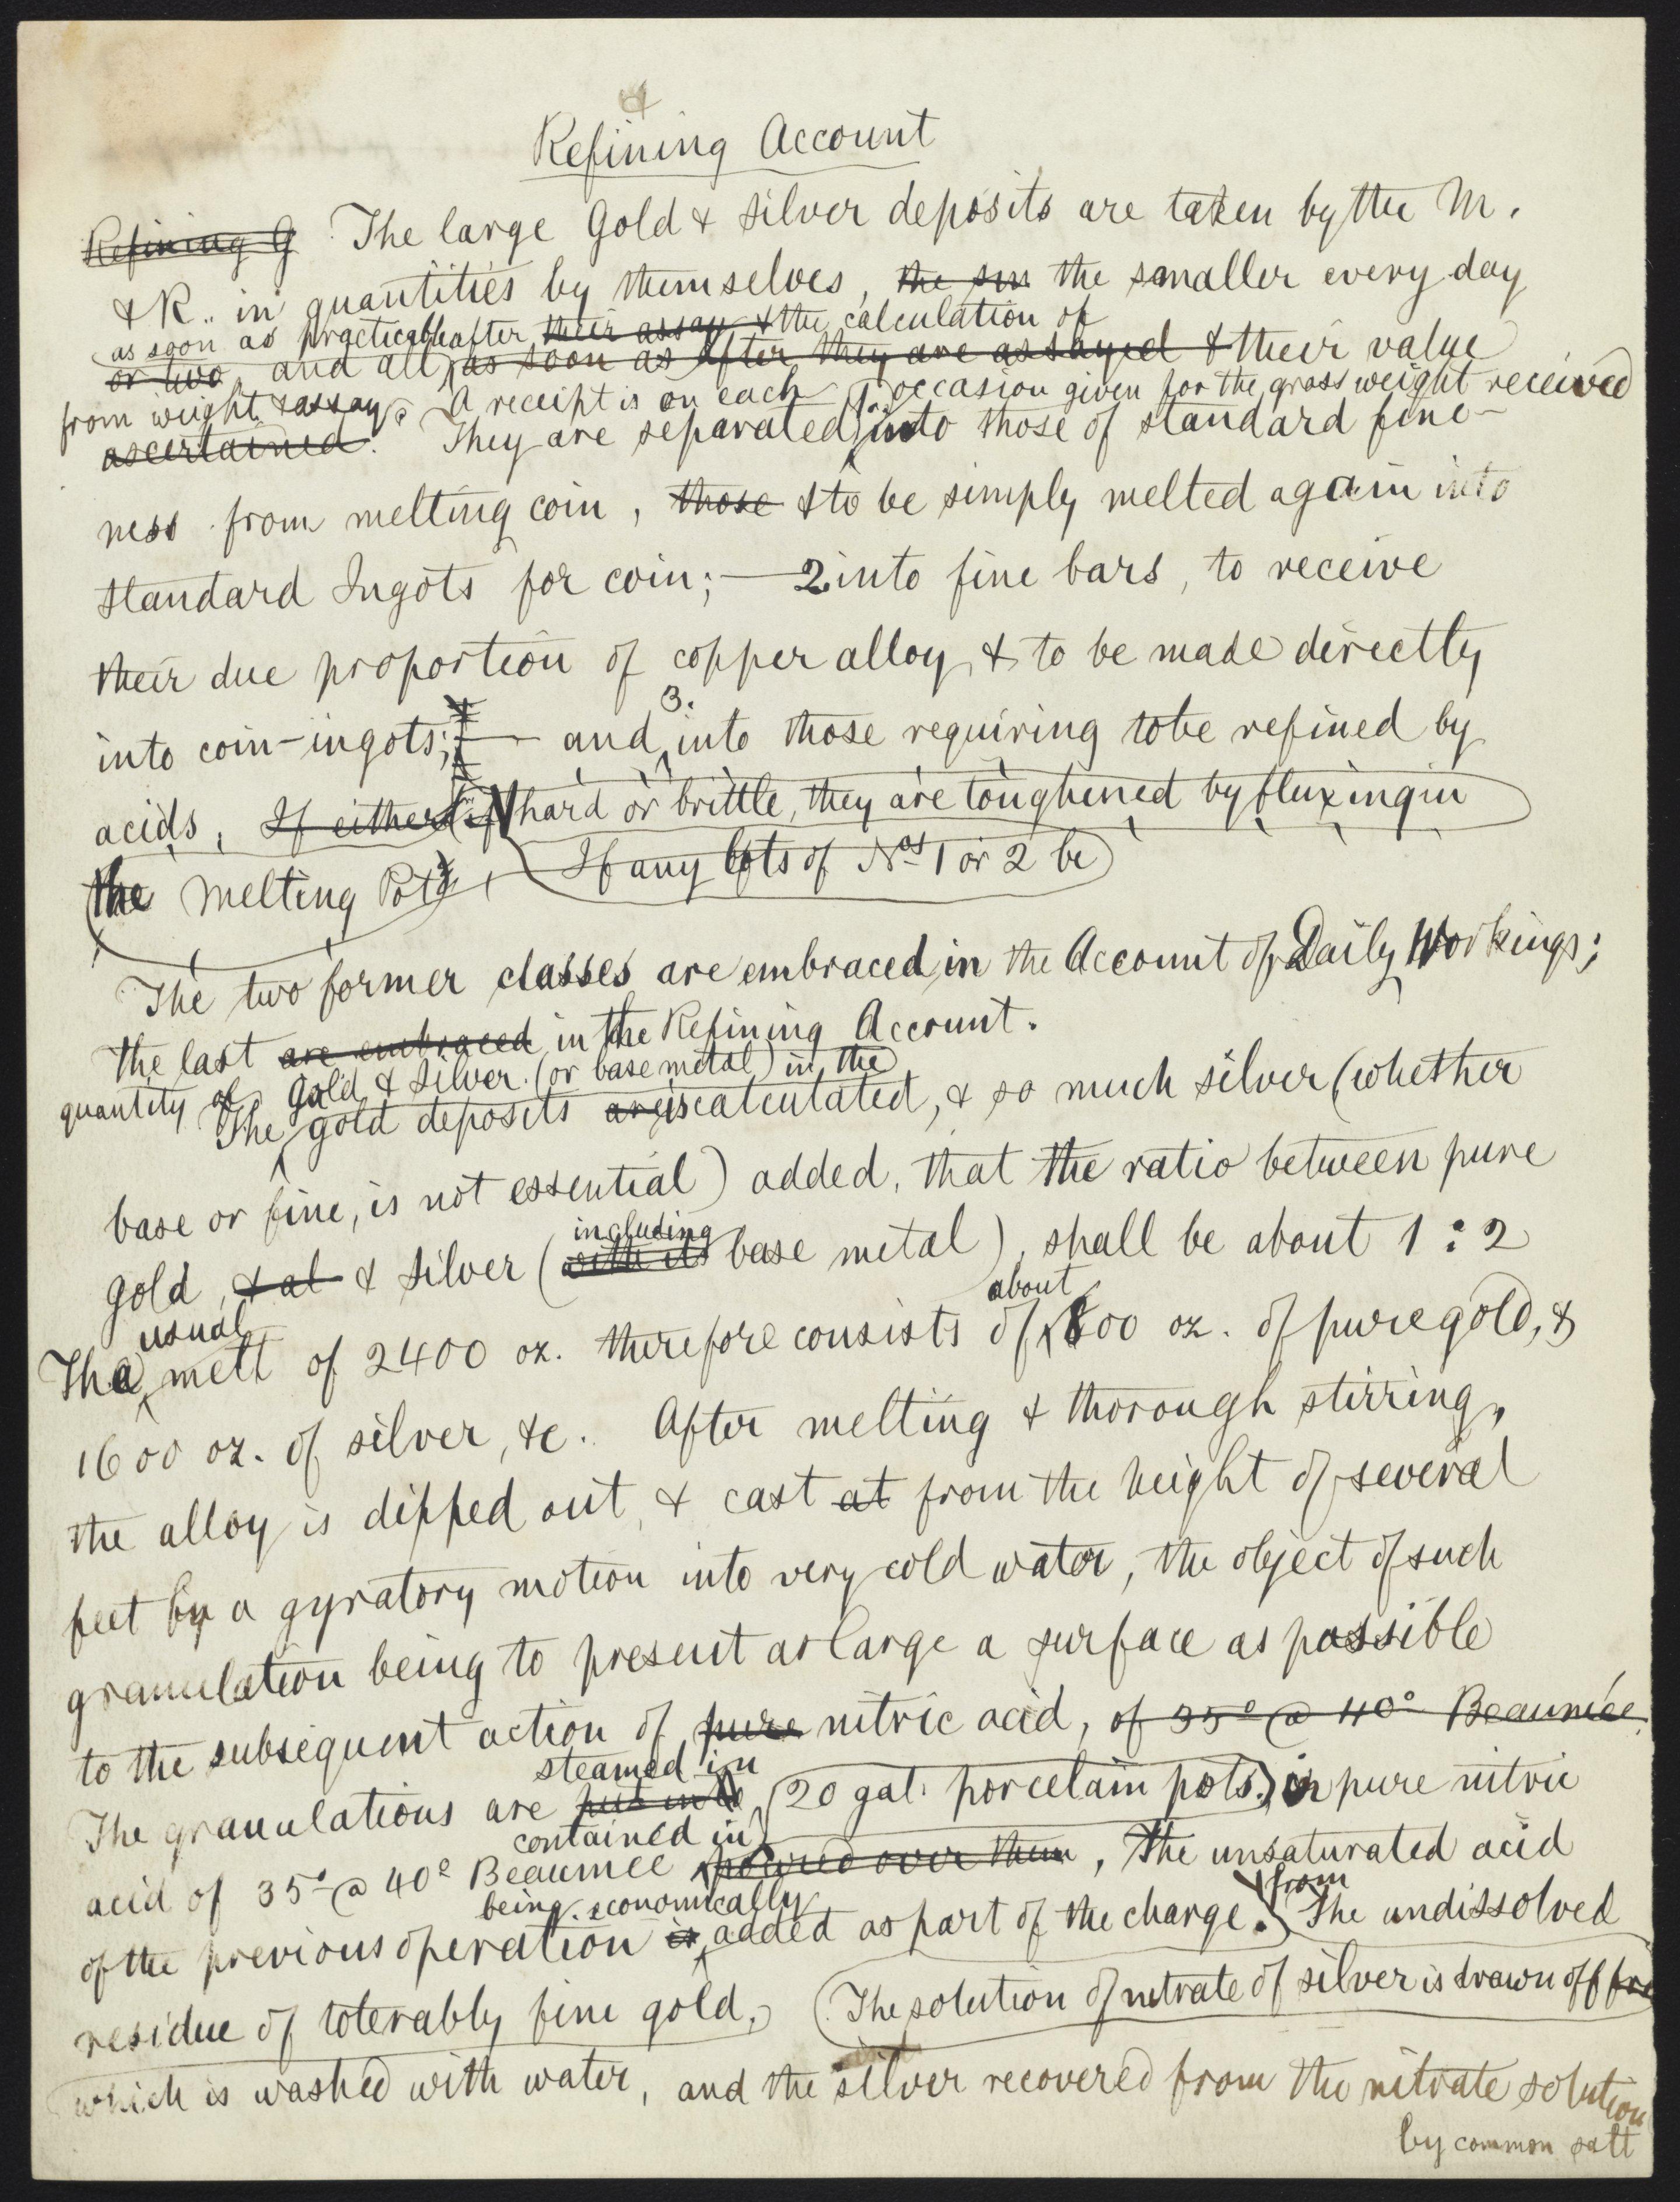 Refining Account
Refining G The large Gold & Silver deposits are taken by the M.
& R.. in quantities by themselves, the sm the smaller every day
as soon as practicable after their assay & the calculation of
or two, and all as soon as after they are assayed & their value
from weight & assay. A receipt is on each occasion given for the gross weight received
ascertained. They are separated 1. into those of standard fine-
ness from melting coin, those & to be simply melted again into
standard Ingots for coin; — 2 into fine bars, to receive
their due proportion of copper alloy, & to be made directly
3.
into coin-ingots; — and into those requiring to be refined by
acids, If either if hard or brittle, they are toughened by fluxing in
the Melting Pots, If any lots of Nos 1 or 2 be
The two former classes are embraced in the Account of Daily Workings;
the last are embraced in the Refining Account.
quantity of Gold & Silver (or base metal) in the
The gold deposits are is calculated, & so much silver (whether
base or fine, is not essential) added, that the ratio between pure
including
gold, & al & silver (with its base metal), shall be about 1:2
usual about
The melt of 2400 oz. therefore consists of 800 oz. of pure gold, &
1600 oz. of silver, &c. After melting & thorough stirring,
the alloy is dipped out, & cast at from the height of several
feet by a gyratory motion into very cold water, the object of such
granulation being to present as large a surface as possible
to the subsequent action of pure nitric acid, of 35° @ 40° Beaumée.
steamed in
The granulations are put into (20 gal. porcelain pots) in pure nitric
contained in
acid of 35° @ 40° Beaumée poured over them, The unsaturated acid
being economically from
of the previous operation is added as part of the charge. The undissolved
residue of tolerably fine gold, (The solution of nitrate of silver is drawn off fro
which is washed with water, and the silver recovered from the nitrate solution
by common salt